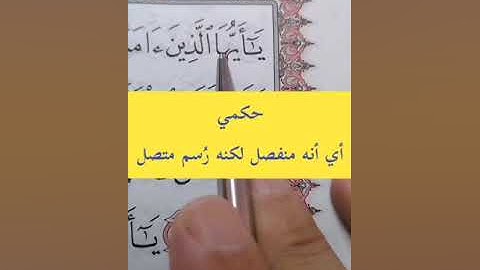 يَٰٓأَيُّهَا ٱلَّذِينَ ءَامَ
حكمي
أي أنه منفصل لكنه رُسم متصل
يَٰٓأَ